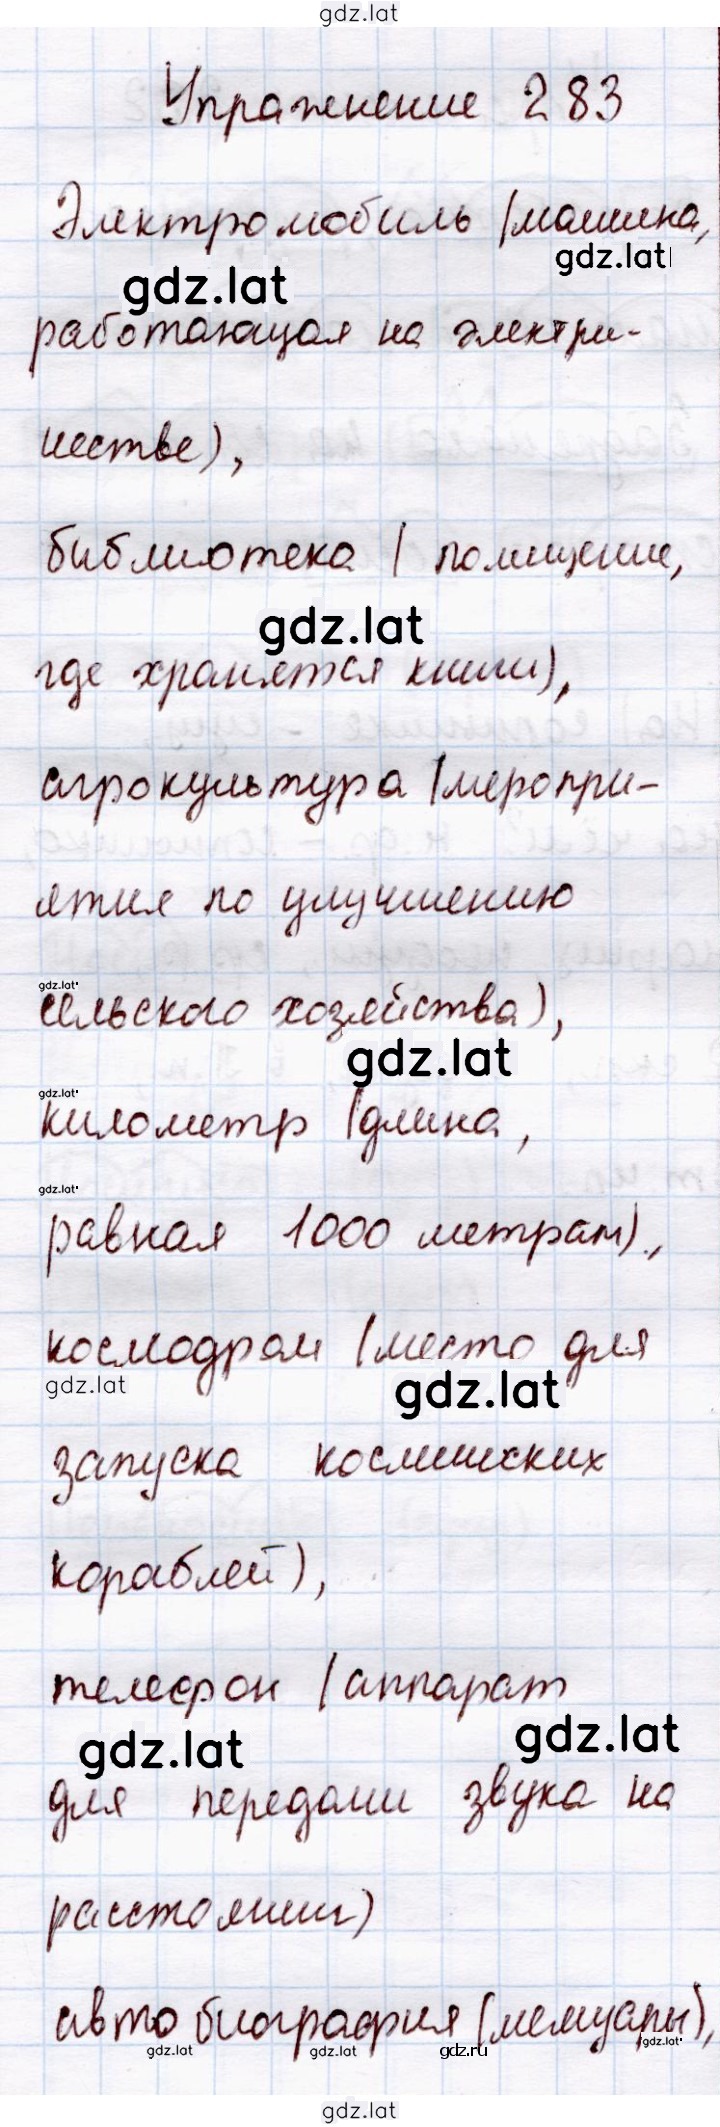 gdz.lat
Упражнение 283
Электромобиль (машина,
gdz.lat
gdz.lat
работающая на электри-
честве),
библиотека (помещение,
gdz.lat
где хранятся книги),
агрокультура (меропри-
ятия по улучшению
gdz.lat
сельского хозяйства),
gdz.lat
gdz.lat
километр (длина,
gdz.lat
равная 1000 метрам).,
космодром (место для
gdz.lat
gdz.lat
запуска космических
кораблей),
телефон (аппарат
gdz.lat
gdz.lat
для передачи звука на
расстоянии)
автобиография (мемуары),
gdz.lat
gdz.lat
gdz.ru
gdz.lat
gdz.lat